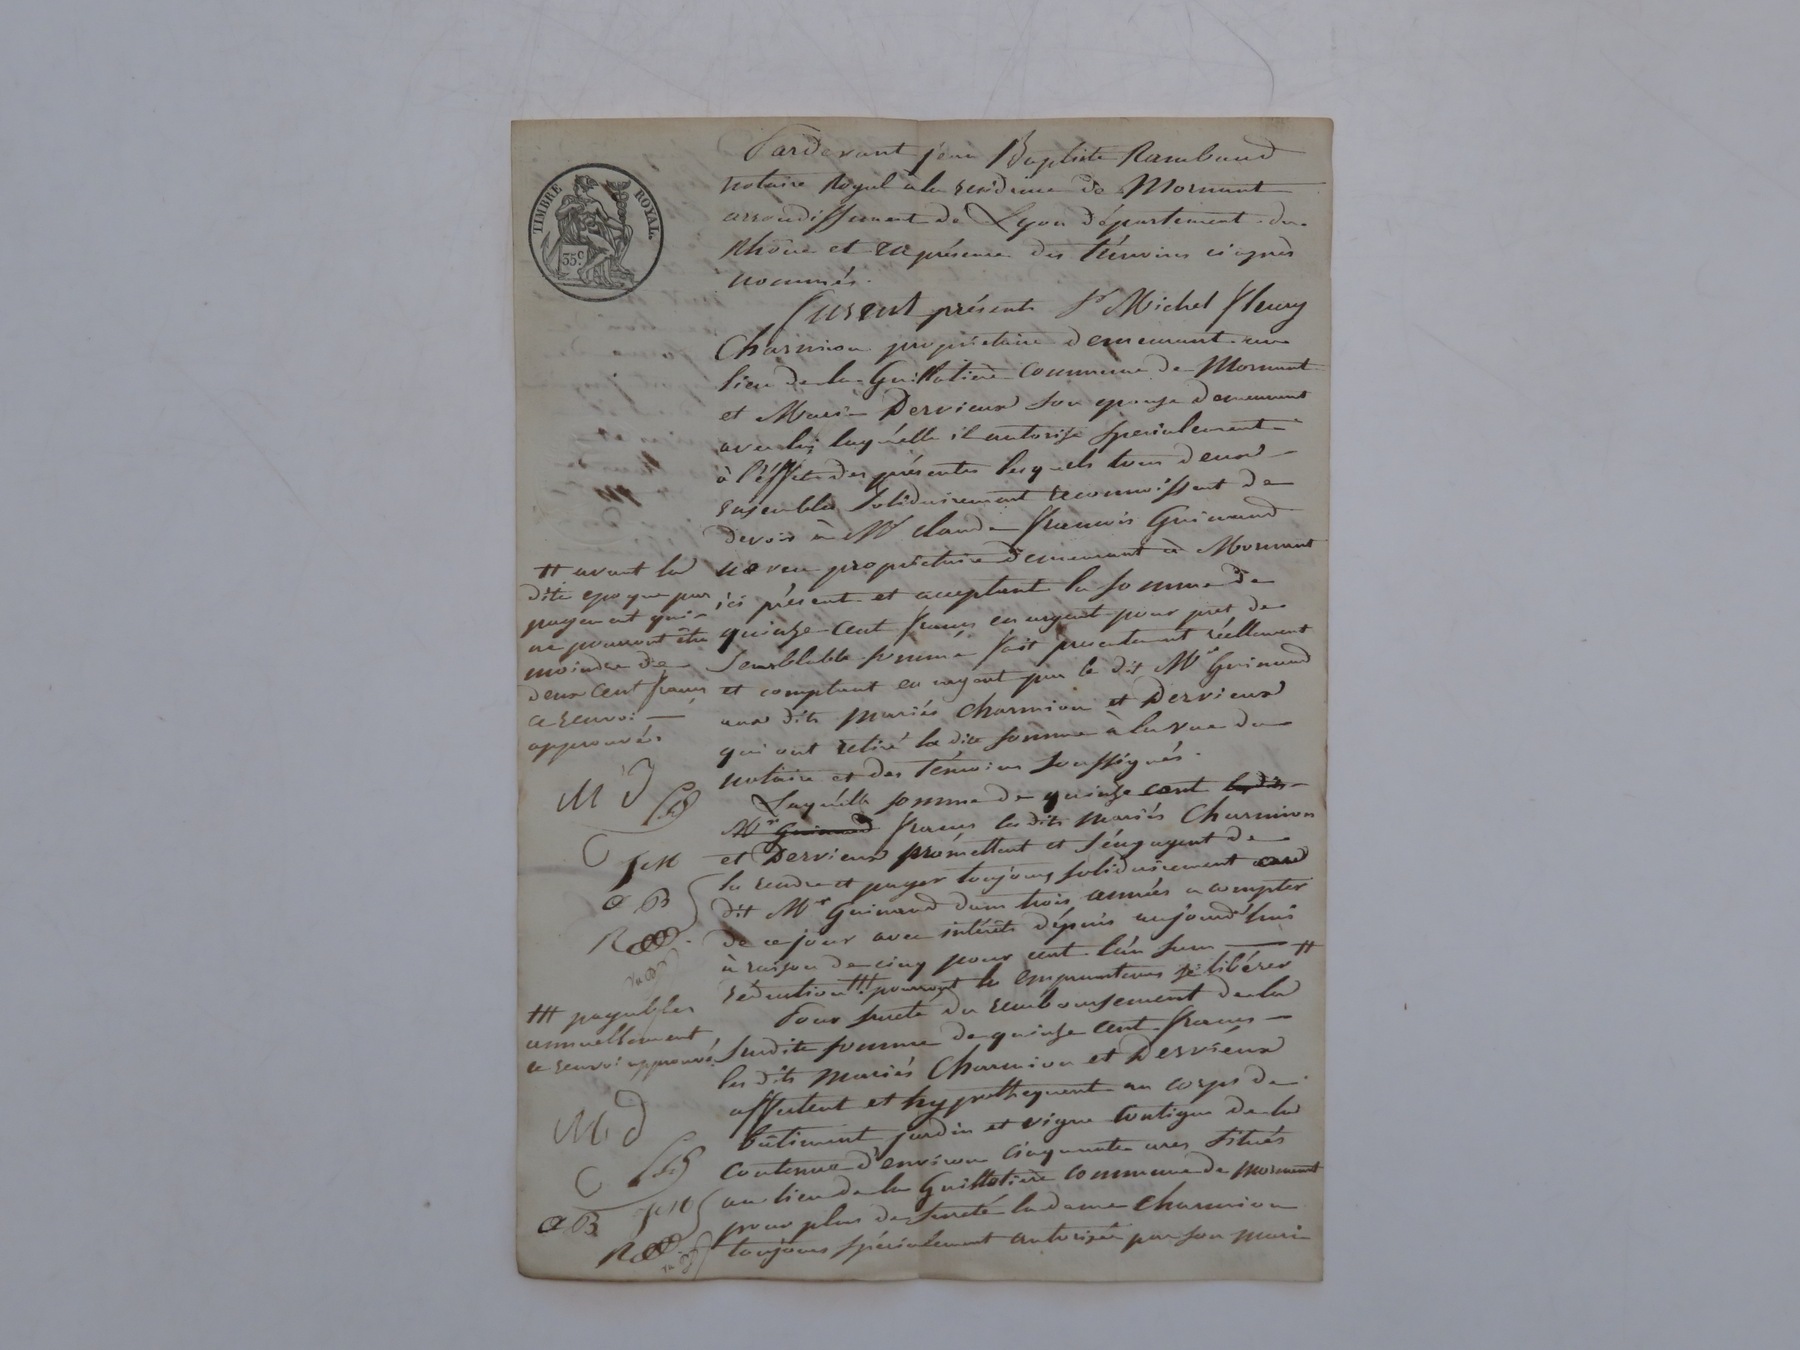 TIMBRE ROYAL.
35 c.
Pardevant jean Baptiste Rambaud
notaire Royal à la residence de Mornant
arrondissement de Lyon département du
Rhône et en présence des témoins ci après
nommés.
Furent présents Sr Michel fleury
Charmion propriétaire demeurant au
lieu de la Guillotière commune de Mornant
et Marie Dervieux son epouse demeurant
avec lui laquelle il autorise specialement
à l'éffet des présentes lesquels tous deux
ensemble solidairement reconnoissent de
devoir à Mr claude françois Guinand
neveu propriétaire demeurant à Mornant
ici présent et acceptant la somme de
quinze cent francs en argent pour pret de
semblable somme fait presentement réellement
et comptant en argent par le dit Mr Guinand
aux dits mariés Charmion et Dervieux
qui ont retiré la dite somme à la vue du
notaire et des témoins soussignés.
Laquelle somme de quinze cent les dits
Mr Guinand francs les dits mariés Charmion
et Dervieux prómettent et s'éngagent de
la rendre et payer toujours solidairement au
dit Mr Guinand dans trois années a compter
de ce jour avec intérêts dépuis aujourd'hui
à raison de cinq pour cent l'án sans
réduction ### pourront les emprunteurs se libérer ##
Pour sureté du remboursement de la
susdite somme de quinze cent francs
les dits mariés Charmion et Dervieux
affectent et hypothequent un corps de
bâtiment jardin et vigne contigue de la
contenue d'environ cinquante ares situés
au lieu de la Guillotière commune de Mornant
pour plus de sureté la dame charmion
toujours spécialement autorisée par son mari
## avant la
dite epoque par
payement qui
ne pourront être
moindre de
deux cent francs
ce renvoi
approuvé.
M D
C
R
### payables
annuellement
ce renvoi approuvé
M D
C
R